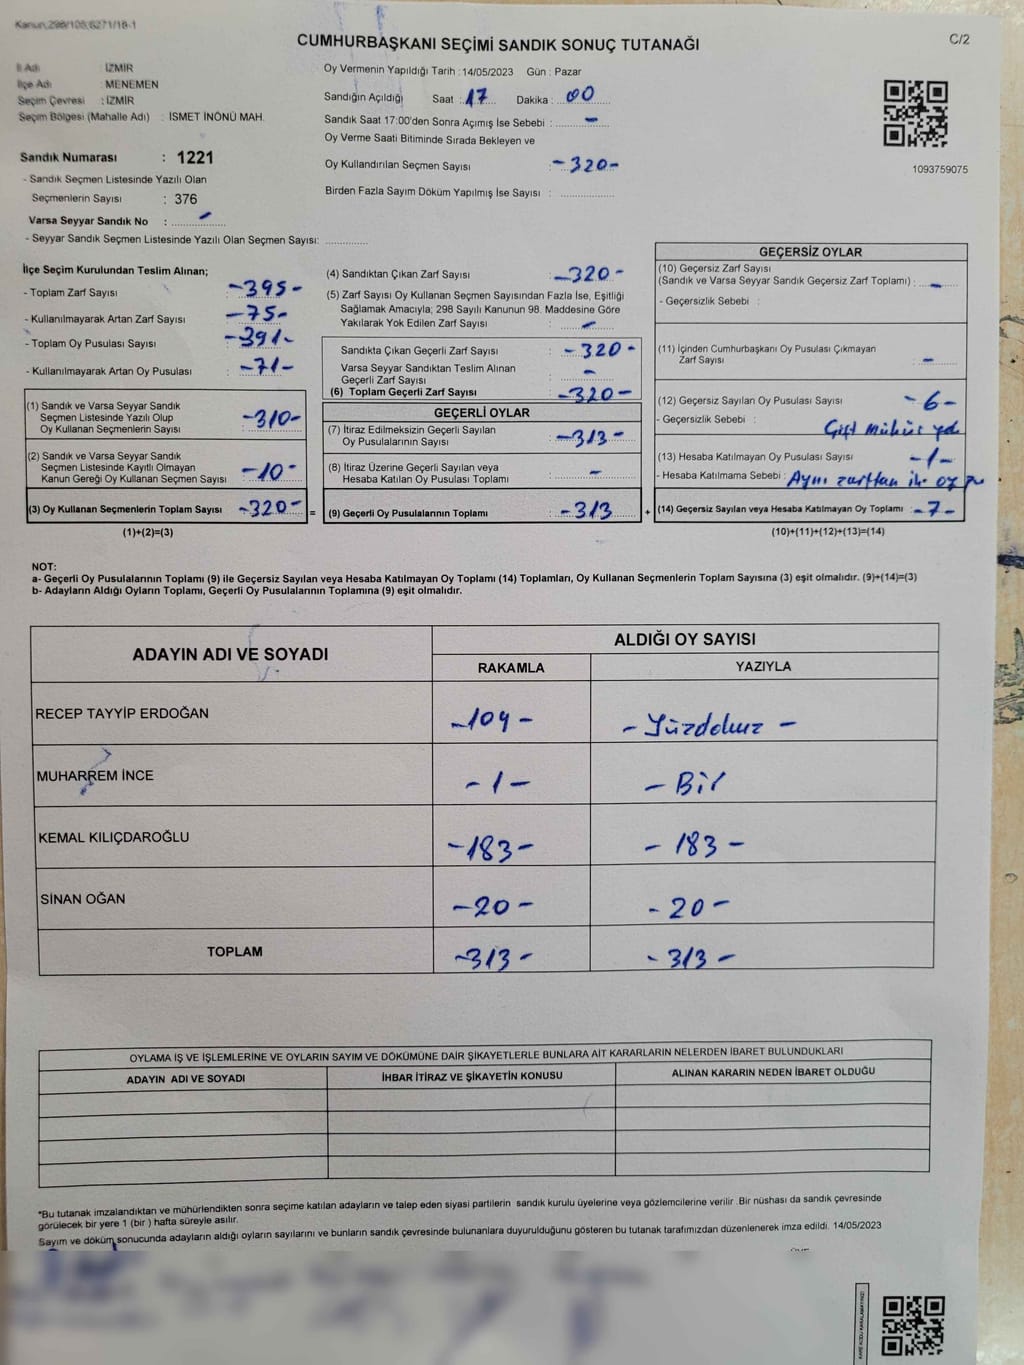 Kanun:298/108;6271/18-1
C/2
CUMHURBAŞKANI SEÇİMİ SANDIK SONUÇ TUTANAĞI
İl Adı : İZMİR
İlçe Adı : MENEMEN
Seçim Çevresi : İZMİR
Seçim Bölgesi (Mahalle Adı) : İSMET İNÖNÜ MAH.
Sandık Numarası : 1221
- Sandık Seçmen Listesinde Yazılı Olan
Seçmenlerin Sayısı : 376
Varsa Seyyar Sandık No : -
- Seyyar Sandık Seçmen Listesinde Yazılı Olan Seçmen Sayısı:
Oy Vermenin Yapıldığı Tarih : 14/05/2023 Gün : Pazar
Sandığın Açıldığı Saat : 17 Dakika : 00
Sandık Saat 17:00'den Sonra Açımış İse Sebebi : -
Oy Verme Saati Bitiminde Sırada Bekleyen ve
Oy Kullandırılan Seçmen Sayısı : -320-
Birden Fazla Sayım Döküm Yapılmış İse Sayısı :
1093759075
İlçe Seçim Kurulundan Teslim Alınan;
- Toplam Zarf Sayısı : -395-
- Kullanılmayarak Artan Zarf Sayısı : -75-
- Toplam Oy Pusulası Sayısı : -391-
- Kullanılmayarak Artan Oy Pusulası : -71-
(1) Sandık ve Varsa Seyyar Sandık
Seçmen Listesinde Yazılı Olup
Oy Kullanan Seçmenlerin Sayısı : -310-
(2) Sandık ve Varsa Seyyar Sandık
Seçmen Listesinde Kayıtlı Olmayan
Kanun Gereği Oy Kullanan Seçmen Sayısı : -10-
(3) Oy Kullanan Seçmenlerin Toplam Sayısı : -320-
(1)+(2)=(3)
(4) Sandıktan Çıkan Zarf Sayısı : -320-
(5) Zarf Sayısı Oy Kullanan Seçmen Sayısından Fazla İse, Eşitliği
Sağlamak Amacıyla; 298 Sayılı Kanunun 98. Maddesine Göre
Yakılarak Yok Edilen Zarf Sayısı : -
Sandıkta Çıkan Geçerli Zarf Sayısı : -320-
Varsa Seyyar Sandıktan Teslim Alınan
Geçerli Zarf Sayısı : -
(6) Toplam Geçerli Zarf Sayısı : -320-
GEÇERLİ OYLAR
(7) İtiraz Edilmeksizin Geçerli Sayılan
Oy Pusulalarının Sayısı : -313-
(8) İtiraz Üzerine Geçerli Sayılan veya
Hesaba Katılan Oy Pusulası Toplamı : -
= (9) Geçerli Oy Pusulalarının Toplamı : -313
GEÇERSİZ OYLAR
(10) Geçersiz Zarf Sayısı
(Sandık ve Varsa Seyyar Sandık Geçersiz Zarf Toplamı) : -
- Geçersizlik Sebebi :
(11) İçinden Cumhurbaşkanı Oy Pusulası Çıkmayan
Zarf Sayısı : -
(12) Geçersiz Sayılan Oy Pusulası Sayısı : -6-
- Geçersizlik Sebebi : Çift Mühür
(13) Hesaba Katılmayan Oy Pusulası Sayısı : -1-
- Hesaba Katılmama Sebebi : Aynı zarftan iki oy
+ (14) Geçersiz Sayılan veya Hesaba Katılmayan Oy Toplamı : -7-
(10)+(11)+(12)+(13)=(14)
NOT:
a- Geçerli Oy Pusulalarının Toplamı (9) ile Geçersiz Sayılan veya Hesaba Katılmayan Oy Toplamı (14) Toplamları, Oy Kullanan Seçmenlerin Toplam Sayısına (3) eşit olmalıdır. (9)+(14)=(3)
b- Adayların Aldığı Oyların Toplamı, Geçerli Oy Pusulalarının Toplamına (9) eşit olmalıdır.
ADAYIN ADI VE SOYADI
ALDIĞI OY SAYISI
RAKAMLA YAZIYLA
RECEP TAYYİP ERDOĞAN -109- -Yüzdokuz-
MUHARREM İNCE -1- -Bir
KEMAL KILIÇDAROĞLU -183- -183-
SİNAN OĞAN -20- -20-
TOPLAM -313- -313-
OYLAMA İŞ VE İŞLEMLERİNE VE OYLARIN SAYIM VE DÖKÜMÜNE DAİR ŞİKAYETLERLE BUNLARA AİT KARARLARIN NELERDEN İBARET BULUNDUKLARI
ADAYIN ADI VE SOYADI İHBAR İTİRAZ VE ŞİKAYETİN KONUSU ALINAN KARARIN NEDEN İBARET OLDUĞU
*Bu tutanak imzalandıktan ve mühürlendikten sonra seçime katılan adayların ve talep eden siyasi partilerin sandık kurulu üyelerine veya gözlemcilerine verilir .Bir nüshası da sandık çevresinde
görülecek bir yere 1 (bir ) hafta süreyle asılır.
Sayım ve döküm sonucunda adayların aldığı oyların sayılarını ve bunların sandık çevresinde bulunanlara duyurulduğunu gösteren bu tutanak tarafımızdan düzenlenerek imza edildi. 14/05/2023
KARE KODU KARALAMAYINIZ!